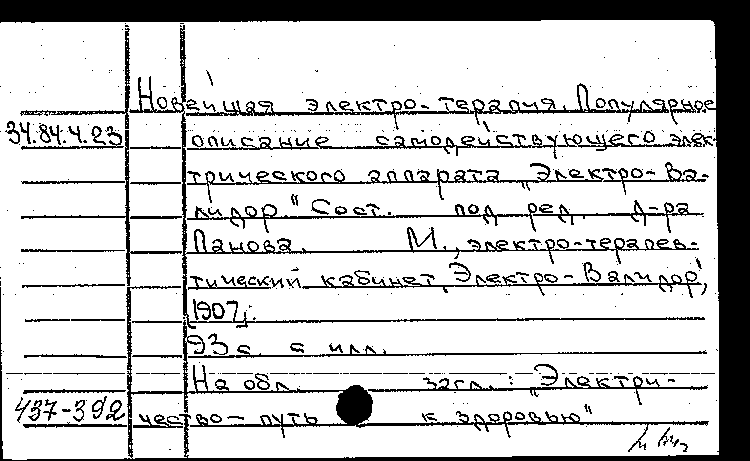 Новейшая электро-терапия. Популярное
34.84.4.23 описание самодействующего элек-
трического аппарата „Электро-Ва-
лидор." Сост. под ред. д-ра
Панова. М., электро-терапев-
тический кабинет „Электро-Валидор",
[1907].
93 с. с илл.
На обл. загл.: „Электри-
437-392 чество — путь к здоровью"